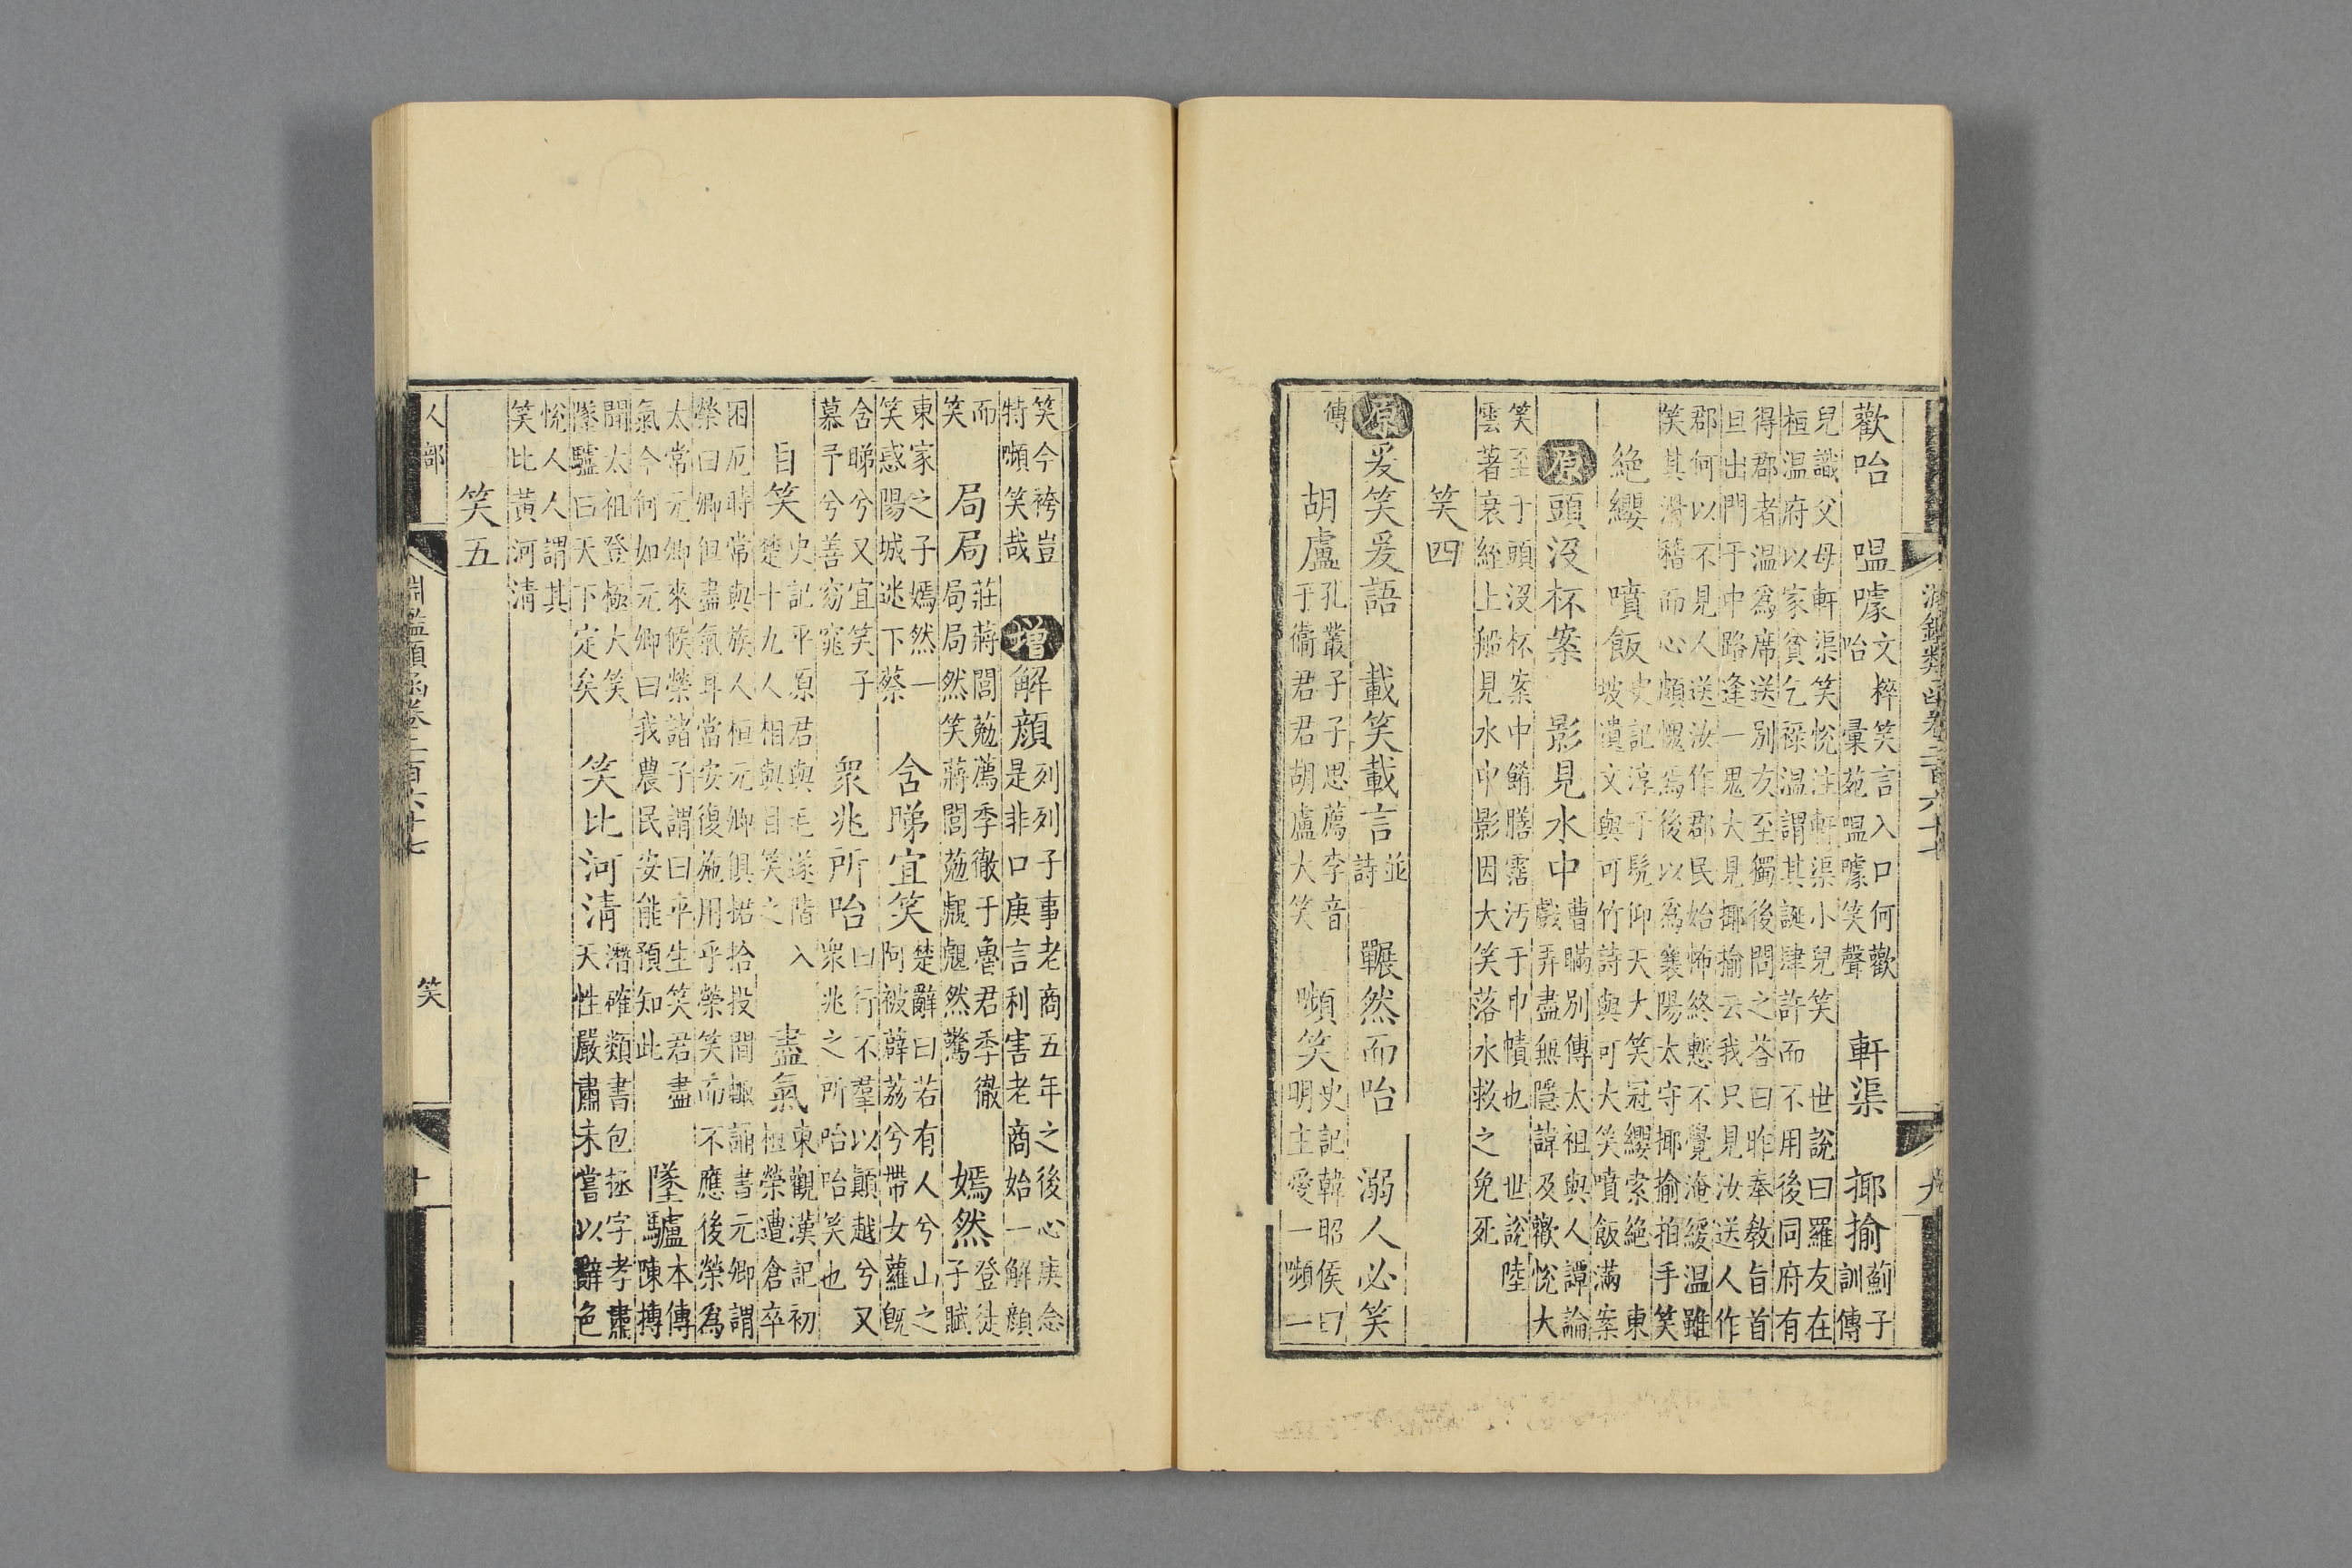 淵鑑類函卷二百六十七 九
歡咍 嗢噱 文粹笑言入口何歡咍 彙苑嗢噱笑聲 軒渠 揶揄 薊子訓傳
兒識父母軒渠笑悅注軒渠小兒笑 世說曰羅友在
桓温府以家貧乞祿温謂其誕肆許而不用後同府有
得郡者温為席送別友至獨後問之荅曰昨奉教旨首
旦出門于中路逢一鬼大見揶揄云我只見汝送人作
郡何以不見人送汝作郡民始怖終慙不覺淹緩温雖
笑其滑稽而心頗愧焉後以為襄陽太守揶揄拍手笑
絶纓 噴飯 史記淳于髠仰天大笑冠纓索絶 東坡遺文與可竹詩與可大笑噴飯滿案
原 頭沒杯案 影見水中 曹瞞別傳太祖與人譚論戲弄盡無隱諱及歡悅大
笑至于頭沒杯案中餚膳霑汚于巾幘也 世說陸
雲著衰絰上船見水中影因大笑落水救之免死
笑四
原 爰笑爰語 載笑載言 並詩 囅然而咍 溺人必笑
傳 胡盧 孔叢子子思薦李音于衞君君胡盧大笑 嚬笑 史記韓昭侯曰明主愛一嚬一
笑今袴豈特嚬笑哉 增 解顔 列列子事老商五年之後心庚念是非口庚言利害老商始一解顔
而笑 局局 莊蔣閭葂薦季徹于魯君季徹局局然笑蔣閭葂覤覤然驚 嫣然 登徒子賦
東家之子嫣然一笑惑陽城迷下蔡 含睇宜笑 楚辭曰若有人兮山之阿被薜荔兮帶女蘿旣
含睇兮又宜笑子慕予兮善窈窕 衆兆所咍 曰行不羣以顛越兮又衆兆之所咍咍笑也
目笑 史記平原君與毛遂偕入楚十九人相與目笑之 盡氣 東觀漢記初桓榮遭倉卒
困厄時常與族人桓元卿俱捃拾投間輒誦書元卿謂
榮曰卿但盡氣耳當安復施用乎榮笑而不應後榮為
太常元卿來候榮諸子謂曰平生笑君盡氣今何如元卿曰我農民安能預知此 墜驢 本傳陳摶
聞太祖登極大笑墜驢曰天下定矣 笑比河清 潛確類書包拯字孝肅天性嚴肅未嘗以辭色
悅人人謂其笑比黃河清
笑五
人部 淵鑑類函卷二百六十七 笑 十